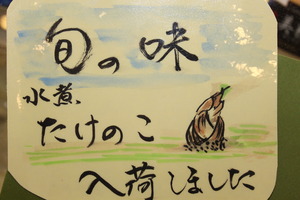 旬の味
水煮
たけのこ
入荷しました